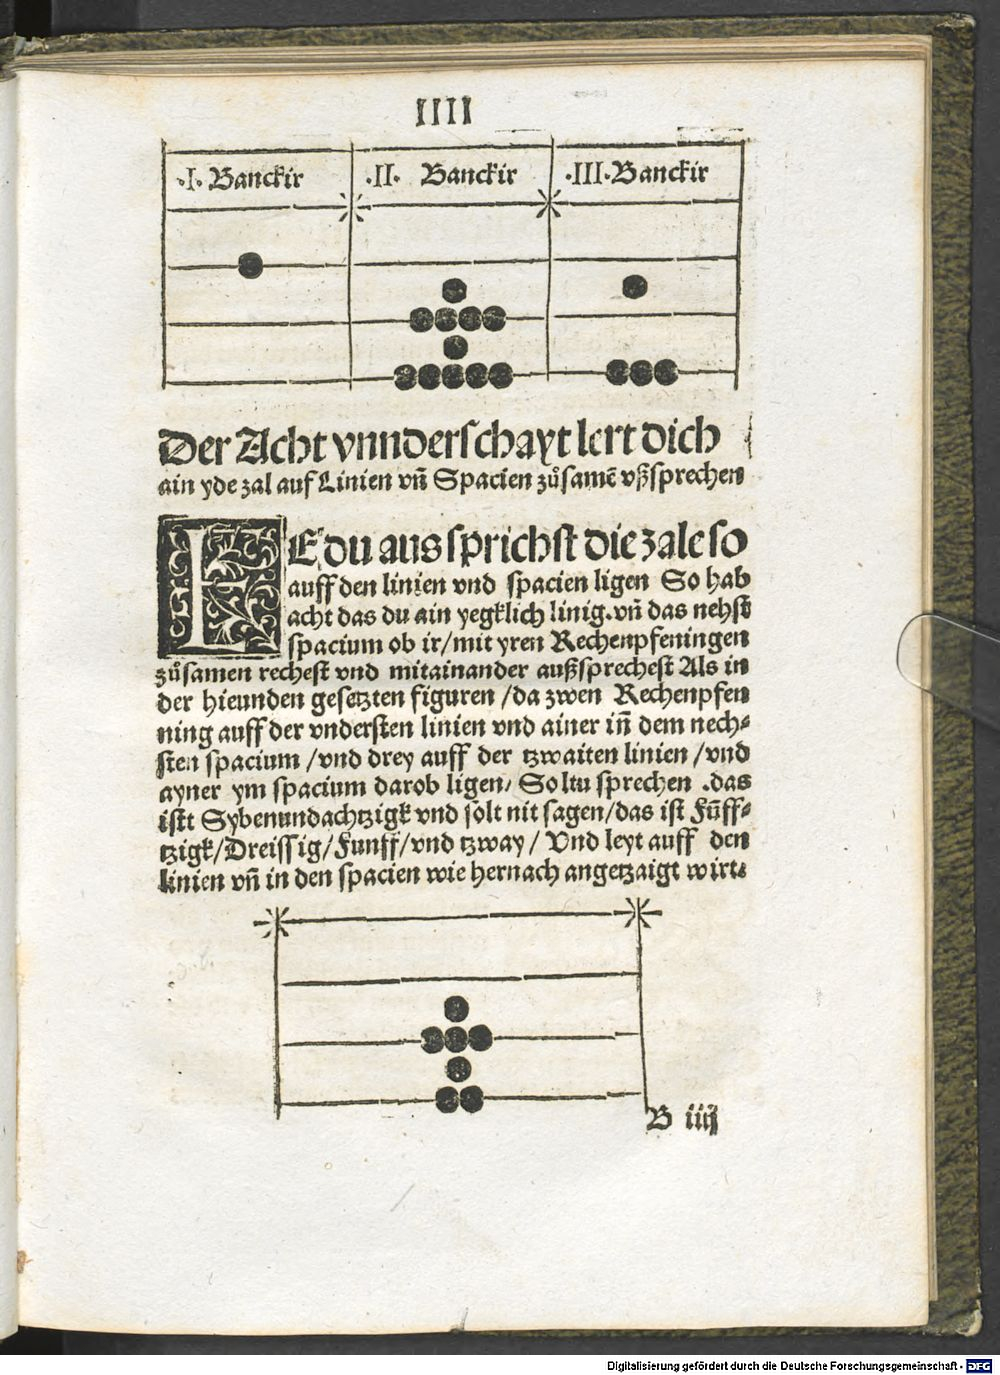 IIII
·I· Banckir ·II· Banckir ·III· Banckir
Der Acht vnnderschayt lert dich
ain yde zal auf Linien vñ Spacien zůsamē vßsprechen
IE du aus sprichst die zale so
auff den linien vnd spacien ligen So hab
acht das du ain yegklich linig. vñ das nehst
spacium ob ir / mit yren Rechenpfeningen
zůsamen rechest vnd mitainander außsprechest Als in
der hieunden gesetzten figuren / da zwen Rechenpfen
ning auff der vndersten linien vnd ainer iñ dem nech⸗
sten spacium / vnd drey auff der tzwaiten linien / vnd
ayner ym spacium darob ligen / Soltu sprechen .das
istt Sybenundachtzigk vnd solt nit sagen / das ist Fūff⸗
tzigk / Dreissig / Funff / vnd tzway / Vnd leyt auff den
linien vñ in den spacien wie hernach angetzaigt wirt⸗
B iiij
Digitalisierung gefördert durch die Deutsche Forschungsgemeinschaft - DFG